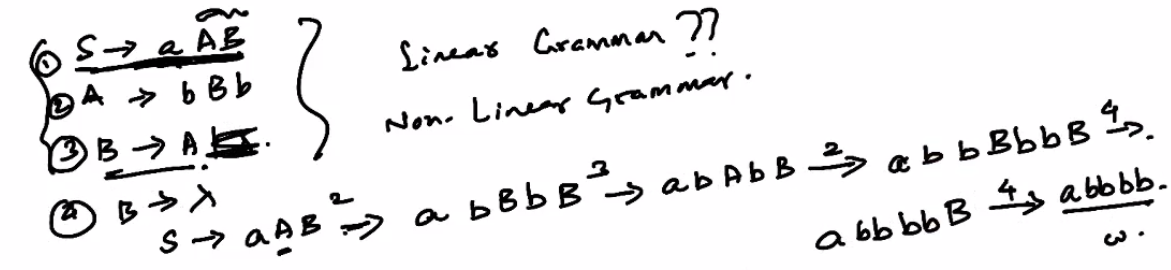 ① S → a AB
② A → b B b
③ B → A .
④ B → λ
Linear Grammar ??
Non-Linear Grammar.
S → aAB 2→ a bBbB 3→ abAbB 2→ abbBbbB 4→.
abbbbB 4→ abbbb.
w.